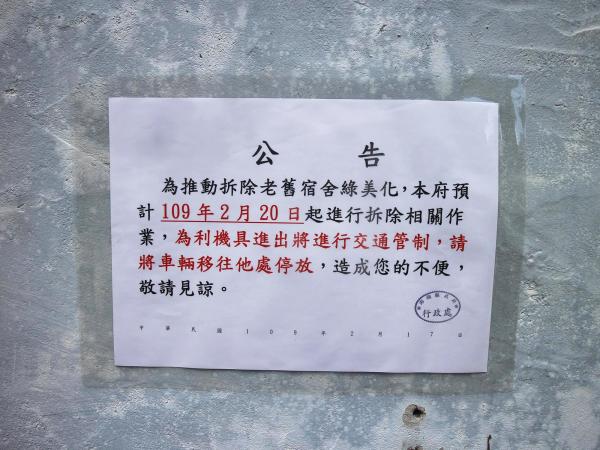 公 告
為推動拆除老舊宿舍綠美化，本府預
計109年2月20日起進行拆除相關作
業，為利機具進出將進行交通管制，請
將車輛移往他處停放，造成您的不便，
敬請見諒。
行政處
中華民國109年2月17日